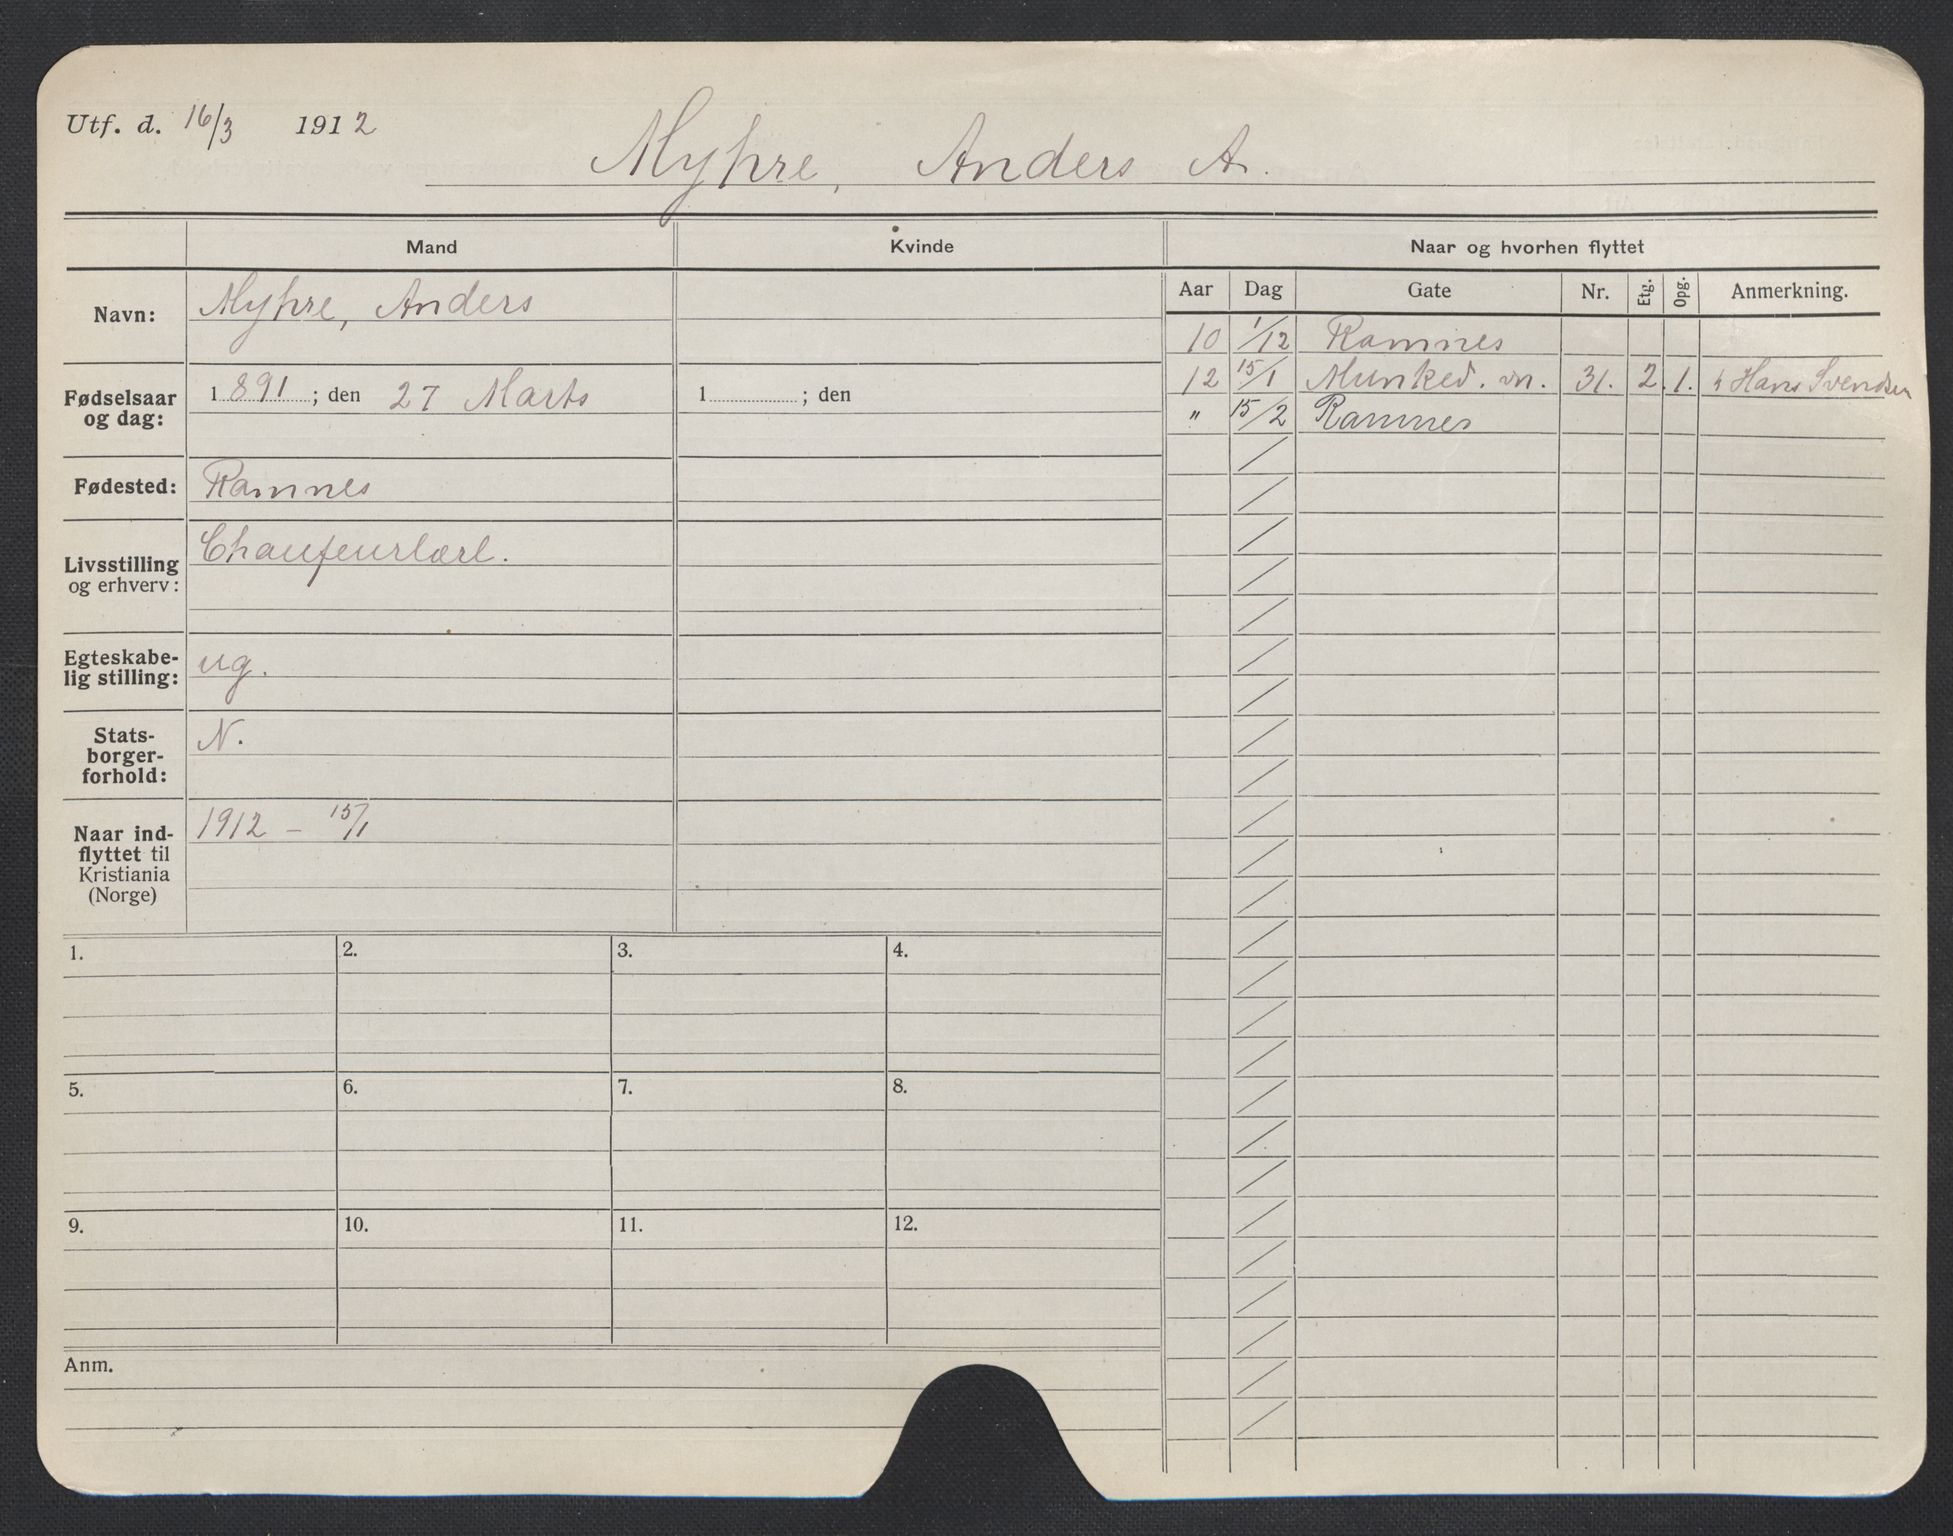 Utf. d. 16/3 1912
Myhre, Anders A.
Mand Kvinde Naar og hvorhen flyttet
Navn: Myhre, Anders
Fødselsaar og dag: 1891; den 27 Marts 1 ; den
Fødested: Ramnes
Livsstilling og erhverv: Chaufeurlærl.
Egteskabe-
lig stilling: ug.
Stats-
borger-
forhold: N.
Naar ind-
flyttet til
Kristiania
(Norge) 1912 - 15/1
Aar Dag Gate Nr. Etg. Opg. Anmerkning.
10 1/12 Ramnes
12 15/1 Munked. vn. 31. 2. 1. Hans Svendsen
" 15/2 Ramnes
1. 2. 3. 4.
5. 6. 7. 8.
9. 10. 11. 12.
Anm.